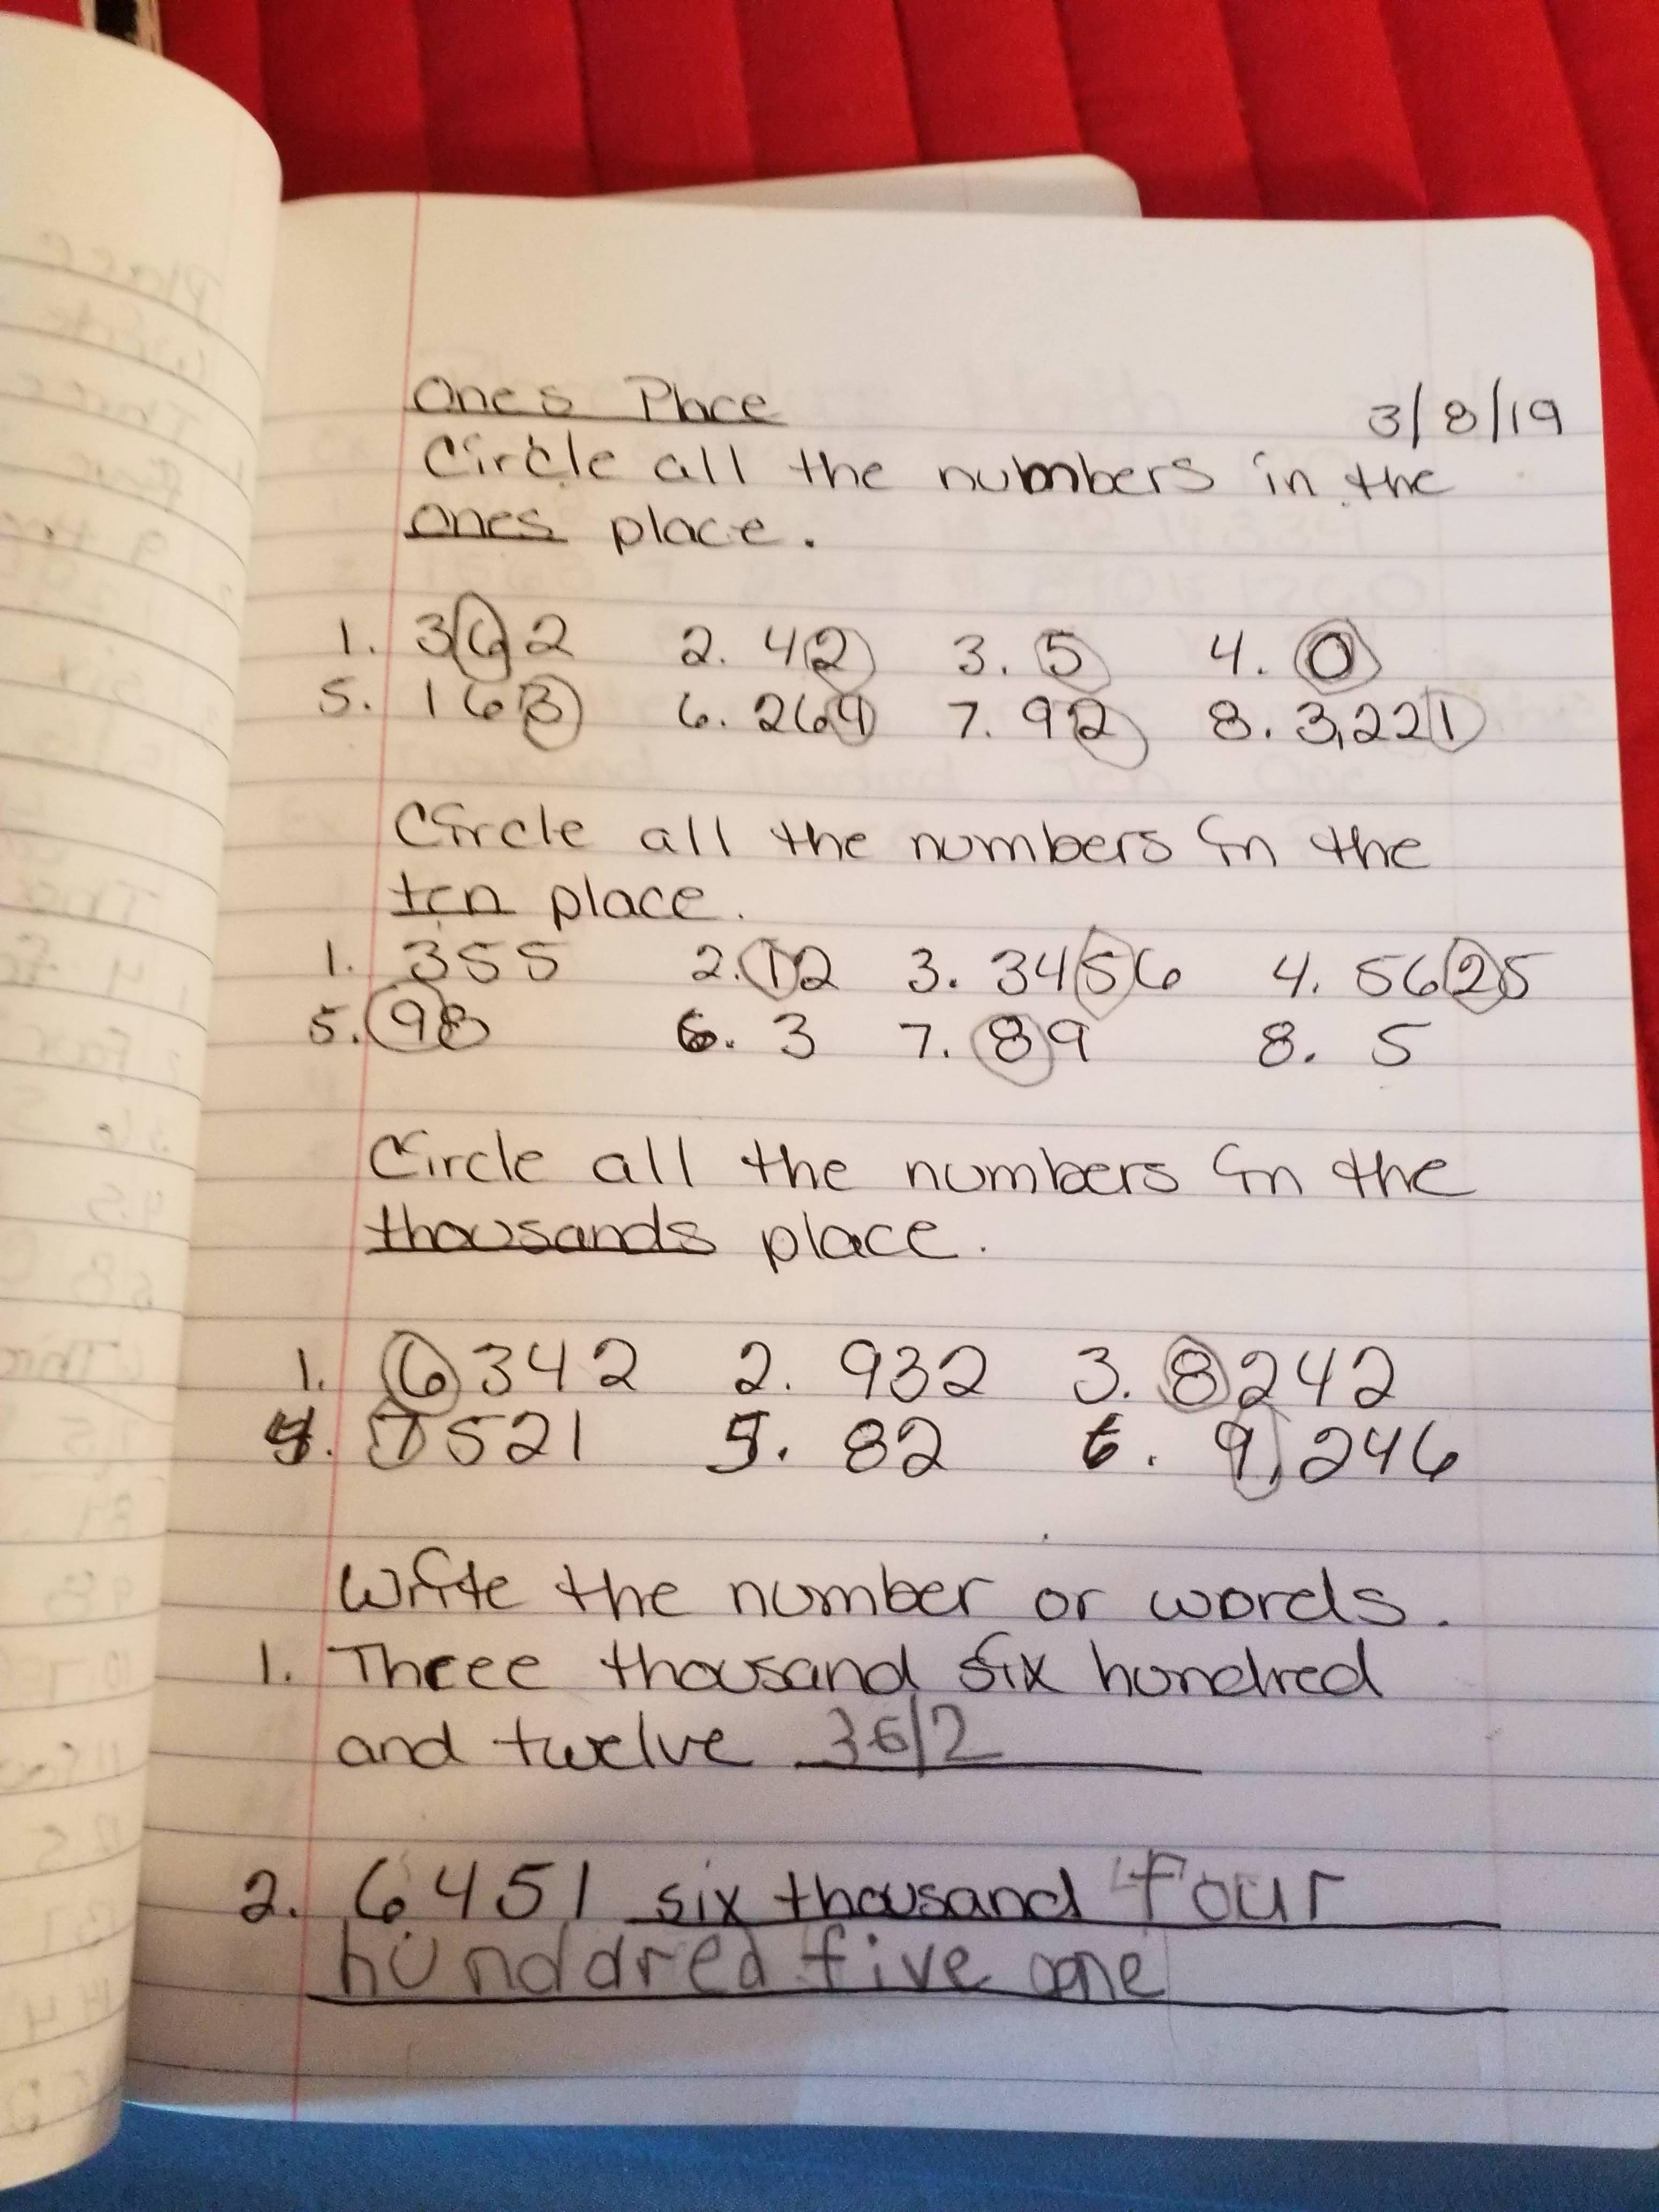 Ones Place 3/8/19
Circle all the numbers in the
ones place.
1. 362 2. 42 3. 5 4. 0
5. 163 6. 264 7. 92 8. 3,221
Circle all the numbers in the
ten place.
1. 355 2. 12 3. 3456 4. 5625
5. 98 6. 3 7. 89 8. 5
Circle all the numbers in the
thousands place.
1. 6342 2. 932 3. 8242
4. 7521 5. 82 6. 9,246
Write the number or words.
1. Three thousand six hundred
and twelve 3612
2. 6451 six thousand four
hunddred five one